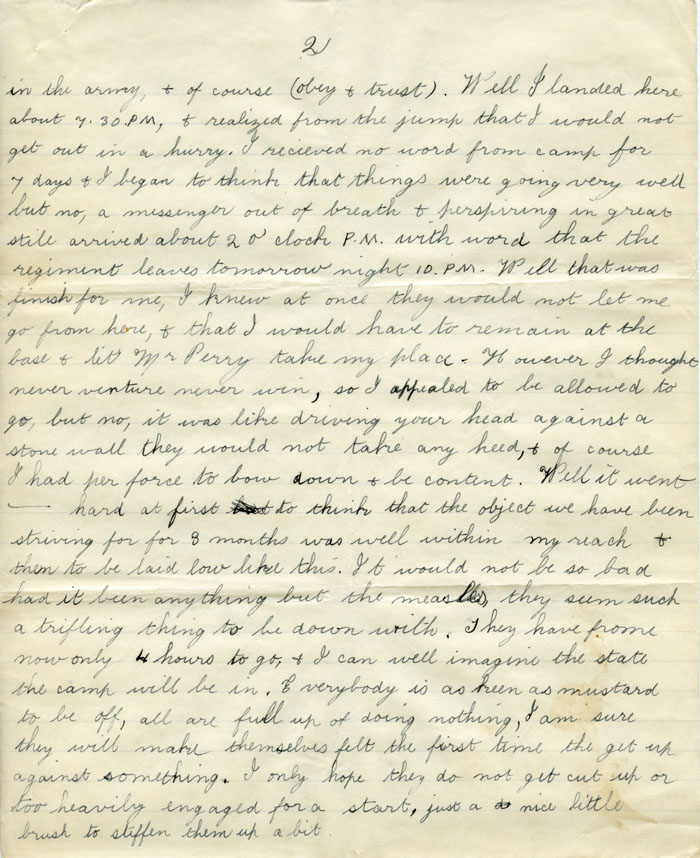 2
in the army, & of course (obey & trust). Well I landed here
about 7.30 P.M, & realized from the jump that I would not
get out in a hurry. I recieved no word from camp for
7 days & I began to think that things were going very well
but no, a messenger out of breath & perspiring in great
stile arrived about 2 o' clock P.M. with word that the
regiment leaves tomorrow night 10. P.M. Well that was
finish for me, I knew at once they would not let me
go from here, & that I would have to remain at the
base & let Mr Perry take my place. However I thought
never venture never win, so I appealed to be allowed to
go, but no, it was like driving your head against a
stone wall they would not take any heed, & of course
I had per force to bow down & be content. Well it went
hard at first to think that the object we have been
striving for for 8 months was well within my reach &
then to be laid low like this. It would not be so bad
had it been anything but the measles, they seem such
a trifling thing to be down with. They have
now only 4 hours to go, & I can well imagine the state
the camp will be in. Everybody is as keen as mustard
to be off, all are full up of doing nothing, I am sure
they will make themselves felt the first time the get up
against something. I only hope they do not get cut up or
too heavily engaged for a start, just a nice little
brush to stiffen them up a bit.